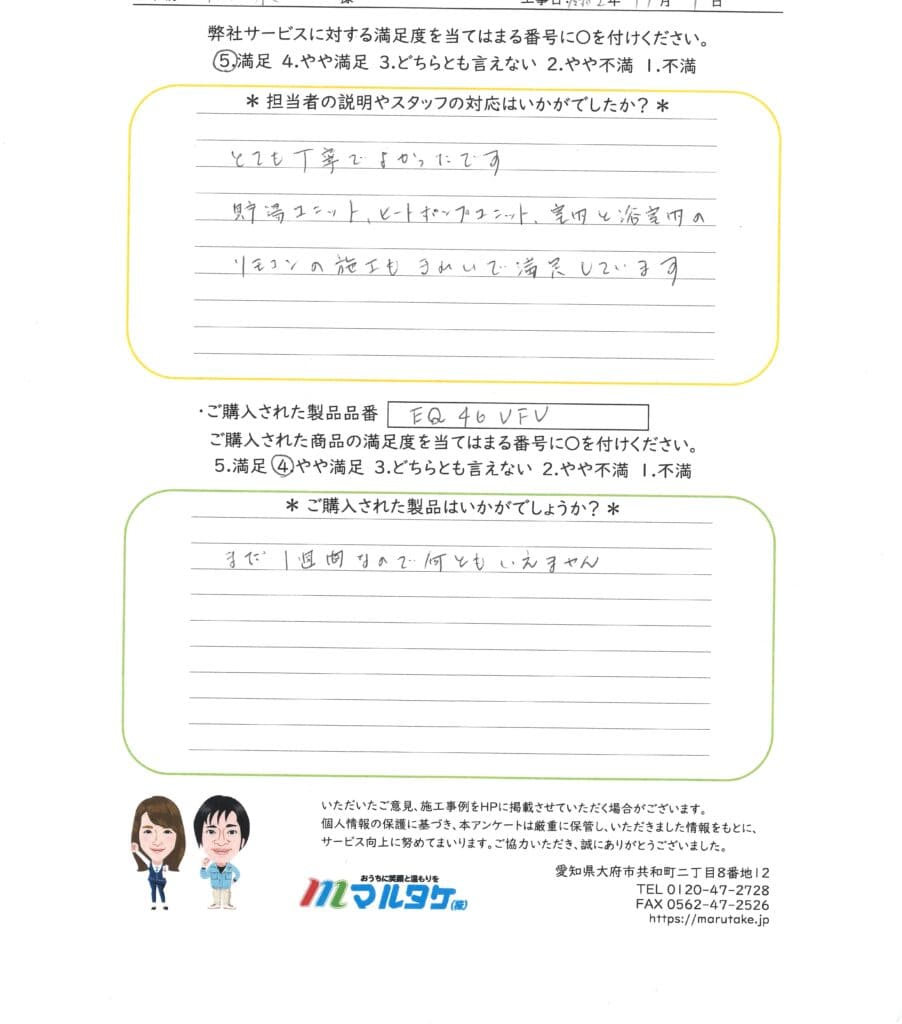 様 工事日 令和2年11月9日
弊社サービスに対する満足度を当てはまる番号に〇を付けください。
5.満足 4.やや満足 3.どちらとも言えない 2.やや不満 1.不満
＊担当者の説明やスタッフの対応はいかがでしたか？＊
とても丁寧でよかったです
貯湯ユニット、ヒートポンプユニット、室内と浴室内の
リモコンの施工もきれいで満足しています
・ご購入された製品品番 EQ46VFV
ご購入された商品の満足度を当てはまる番号に〇を付けください。
5.満足 4.やや満足 3.どちらとも言えない 2.やや不満 1.不満
＊ご購入された製品はいかがでしょうか？＊
まだ1週間なので何ともいえません
いただいたご意見、施工事例をHPに掲載させていただく場合がございます。
個人情報の保護に基づき、本アンケートは厳重に保管し、いただきました情報をもとに、
サービス向上に努めてまいります。ご協力いただき、誠にありがとうございました。
おうちに笑顔と温もりを
マルタケ(株)
愛知県大府市共和町二丁目8番地12
TEL 0120-47-2728
FAX 0562-47-2526
https://marutake.jp